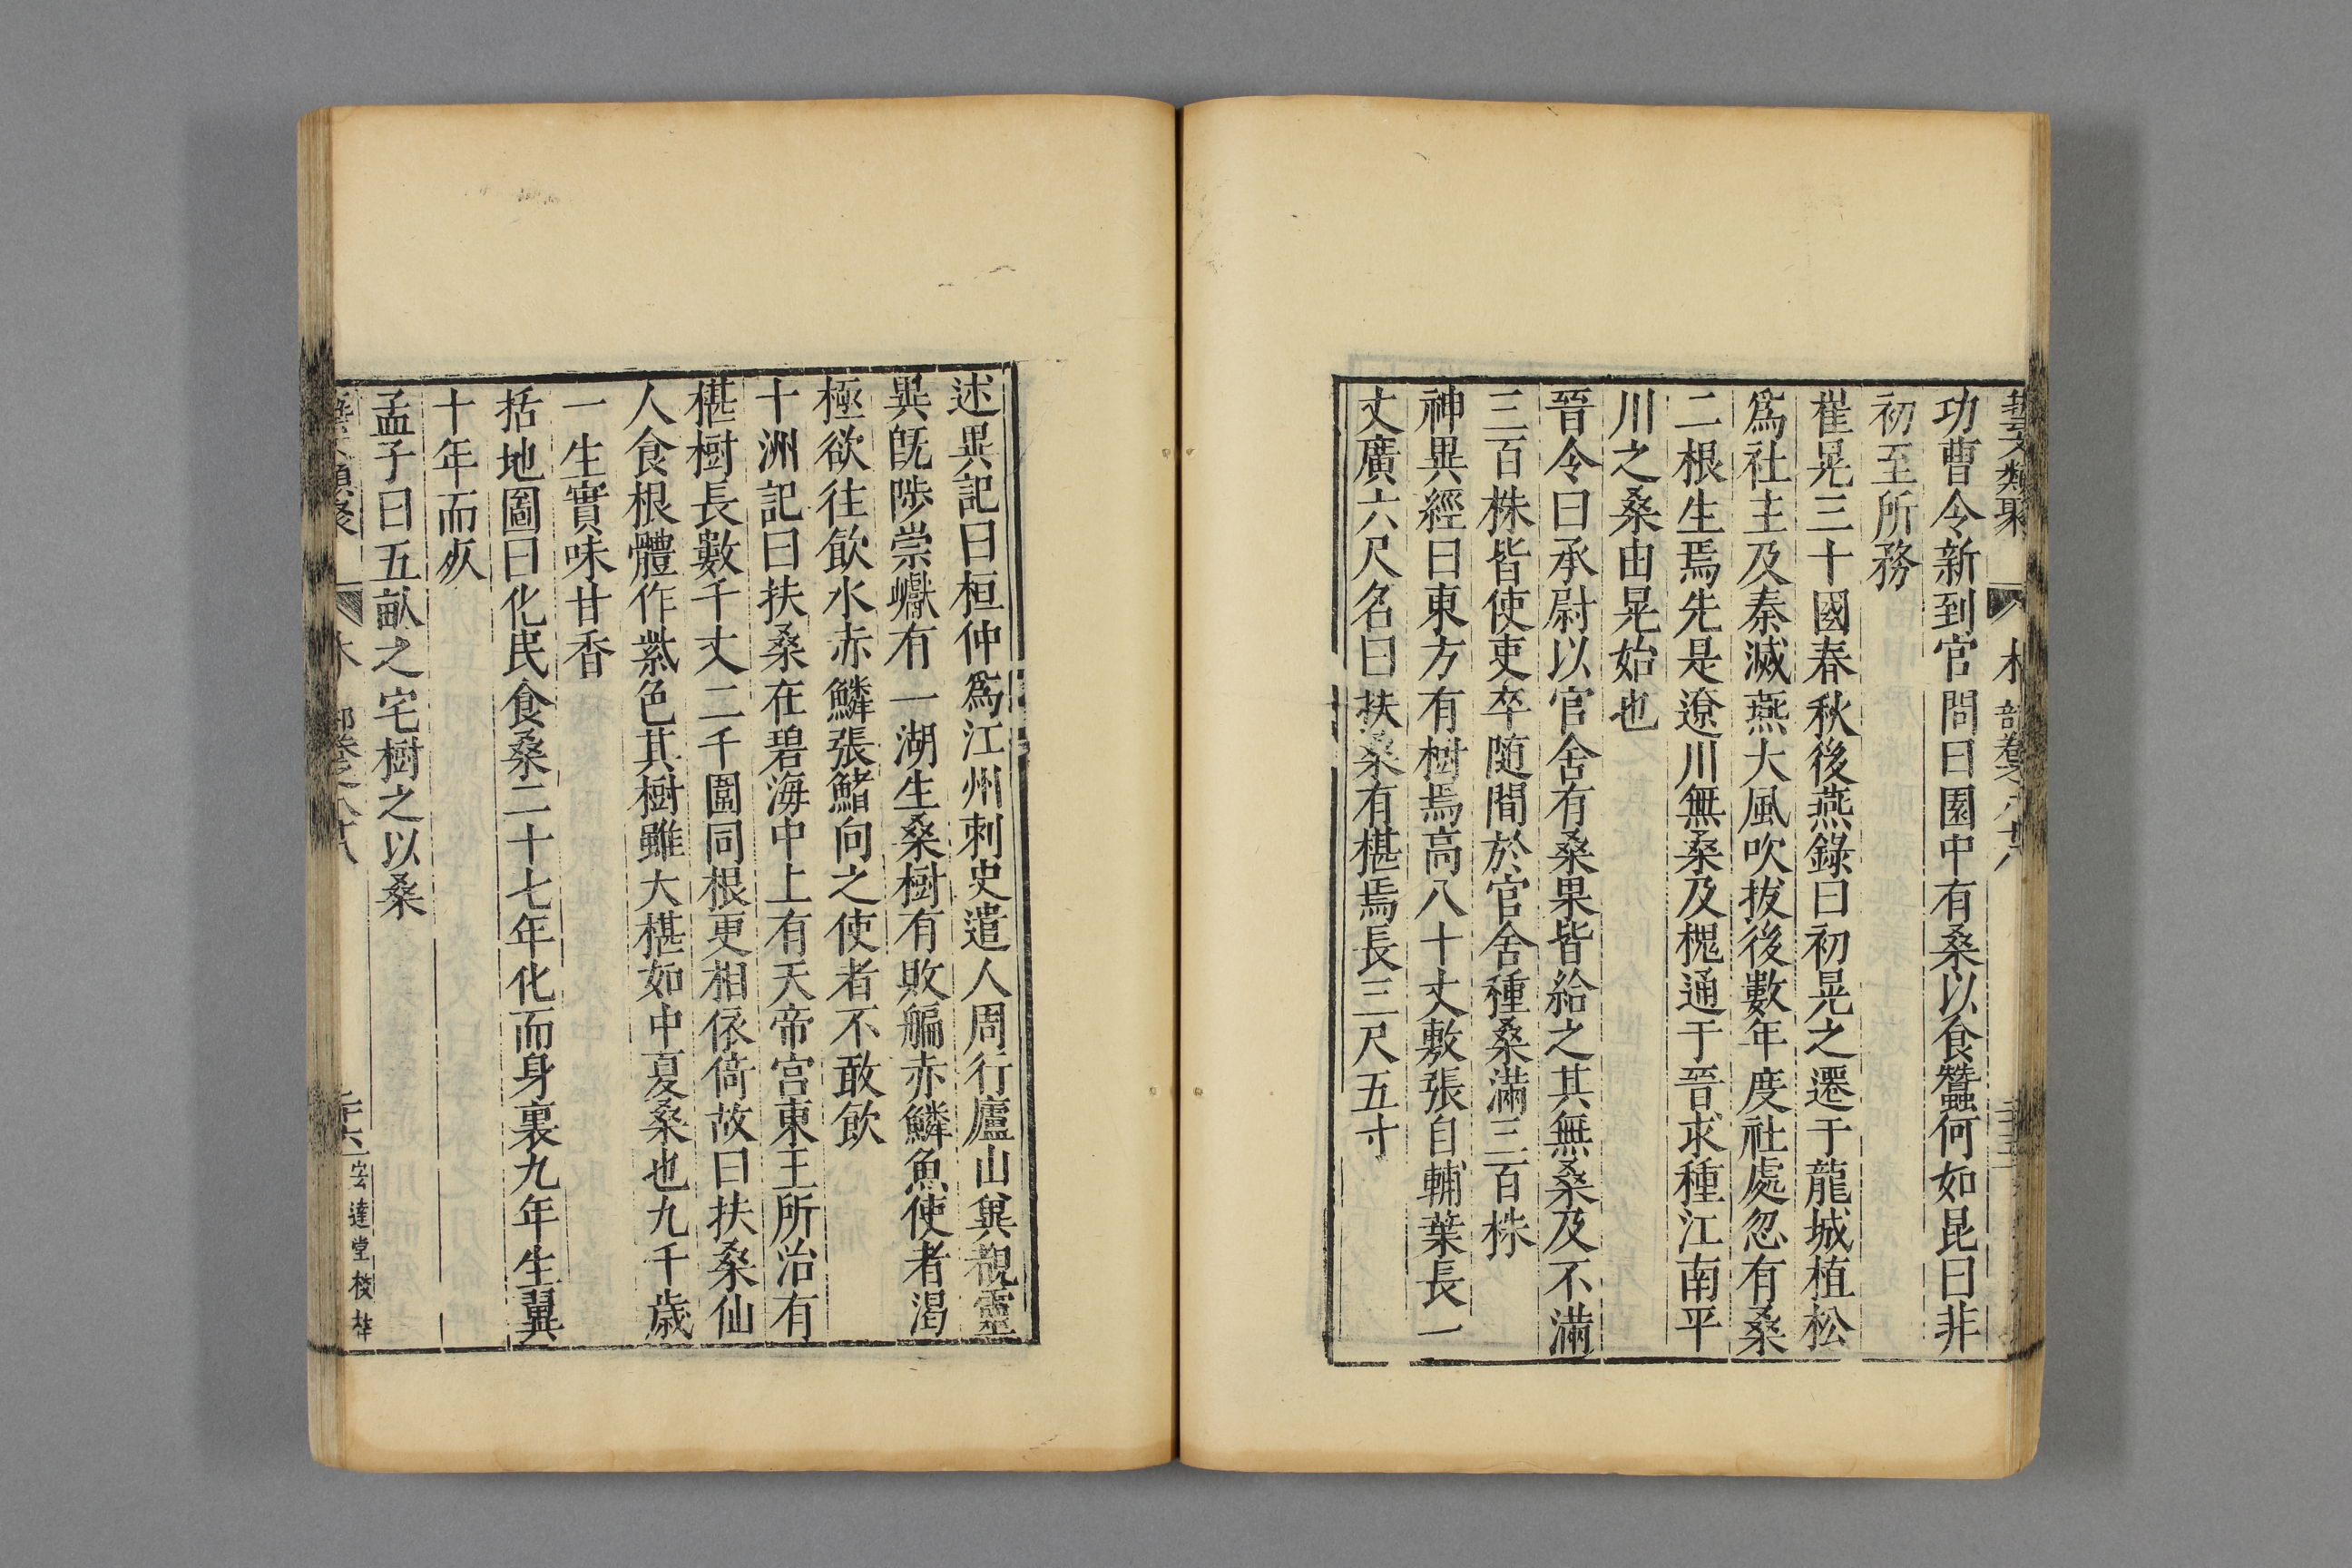 功曹令新到官問曰園中有桑以食蠶何如昆曰非
初至所務
崔晃三十國春秋後燕錄曰初晃之遷于龍城植松
爲社主及秦滅燕大風吹拔後數年度社處忽有桑
二根生焉先是遼川無桑及槐通于晉求種江南平
川之桑由晃始也
晉令曰承尉以官舍有桑果皆給之其無桑及不滿
三百株皆使吏卒随間於官舍種桑滿三百株
神異經曰東方有樹焉高八十丈敷張自輔葉長一
丈廣六尺名曰扶桑有椹焉長三尺五寸
述異記曰桓仲爲江州刺史遣人周行廬山兾覩靈
異旣陟崇巘有一湖生桑樹有敗艑赤鱗魚使者渴
極欲往飲水赤鱗張鰭向之使者不敢飲
十洲記曰扶桑在碧海中上有天帝宮東王所治有
椹樹長數千丈二千圍同根更相依倚故曰扶桑仙
人食根體作紫色其樹雖大椹如中夏桑也九千歳
一生實味甘香
括地圖曰化民食桑二十七年化而身裹九年生翼
十年而死
孟子曰五畝之宅樹之以桑
安達堂校梓